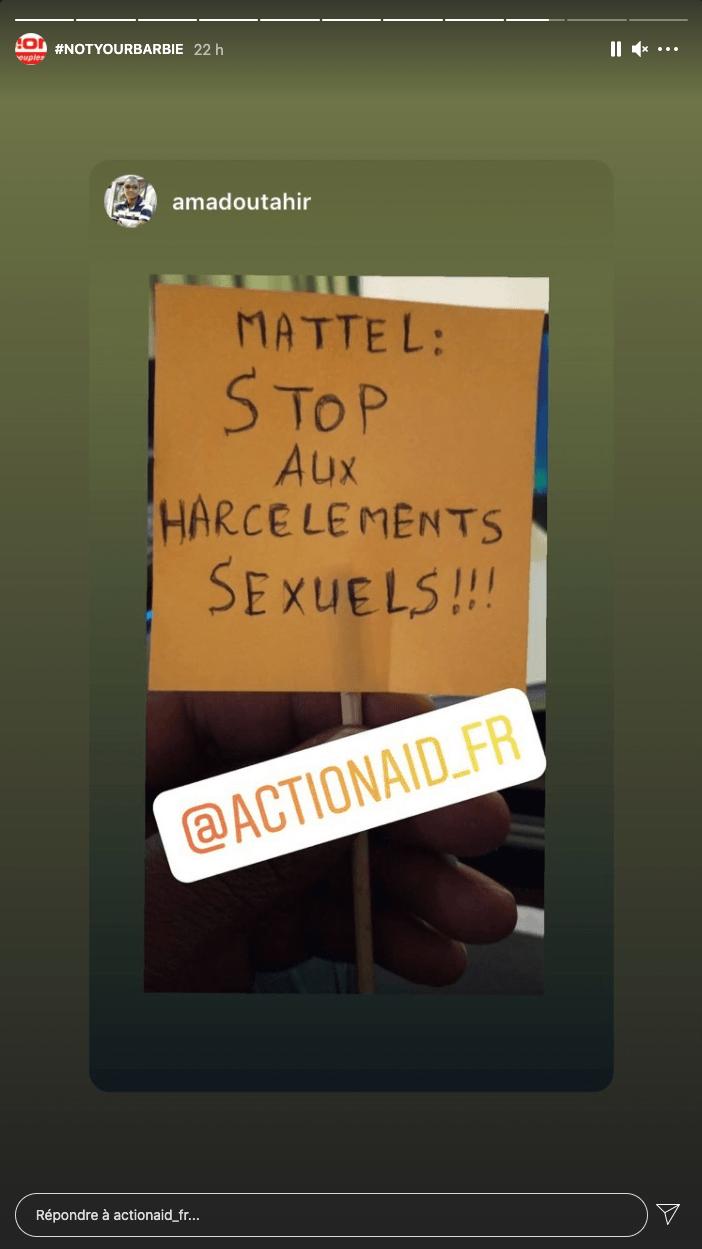 #NOTYOURBARBIE 22 h
amadoutahir
MATTEL:
STOP
AUX
HARCELEMENTS
SEXUELS!!!
@ACTIONAID_FR
Répondre à actionaid_fr...